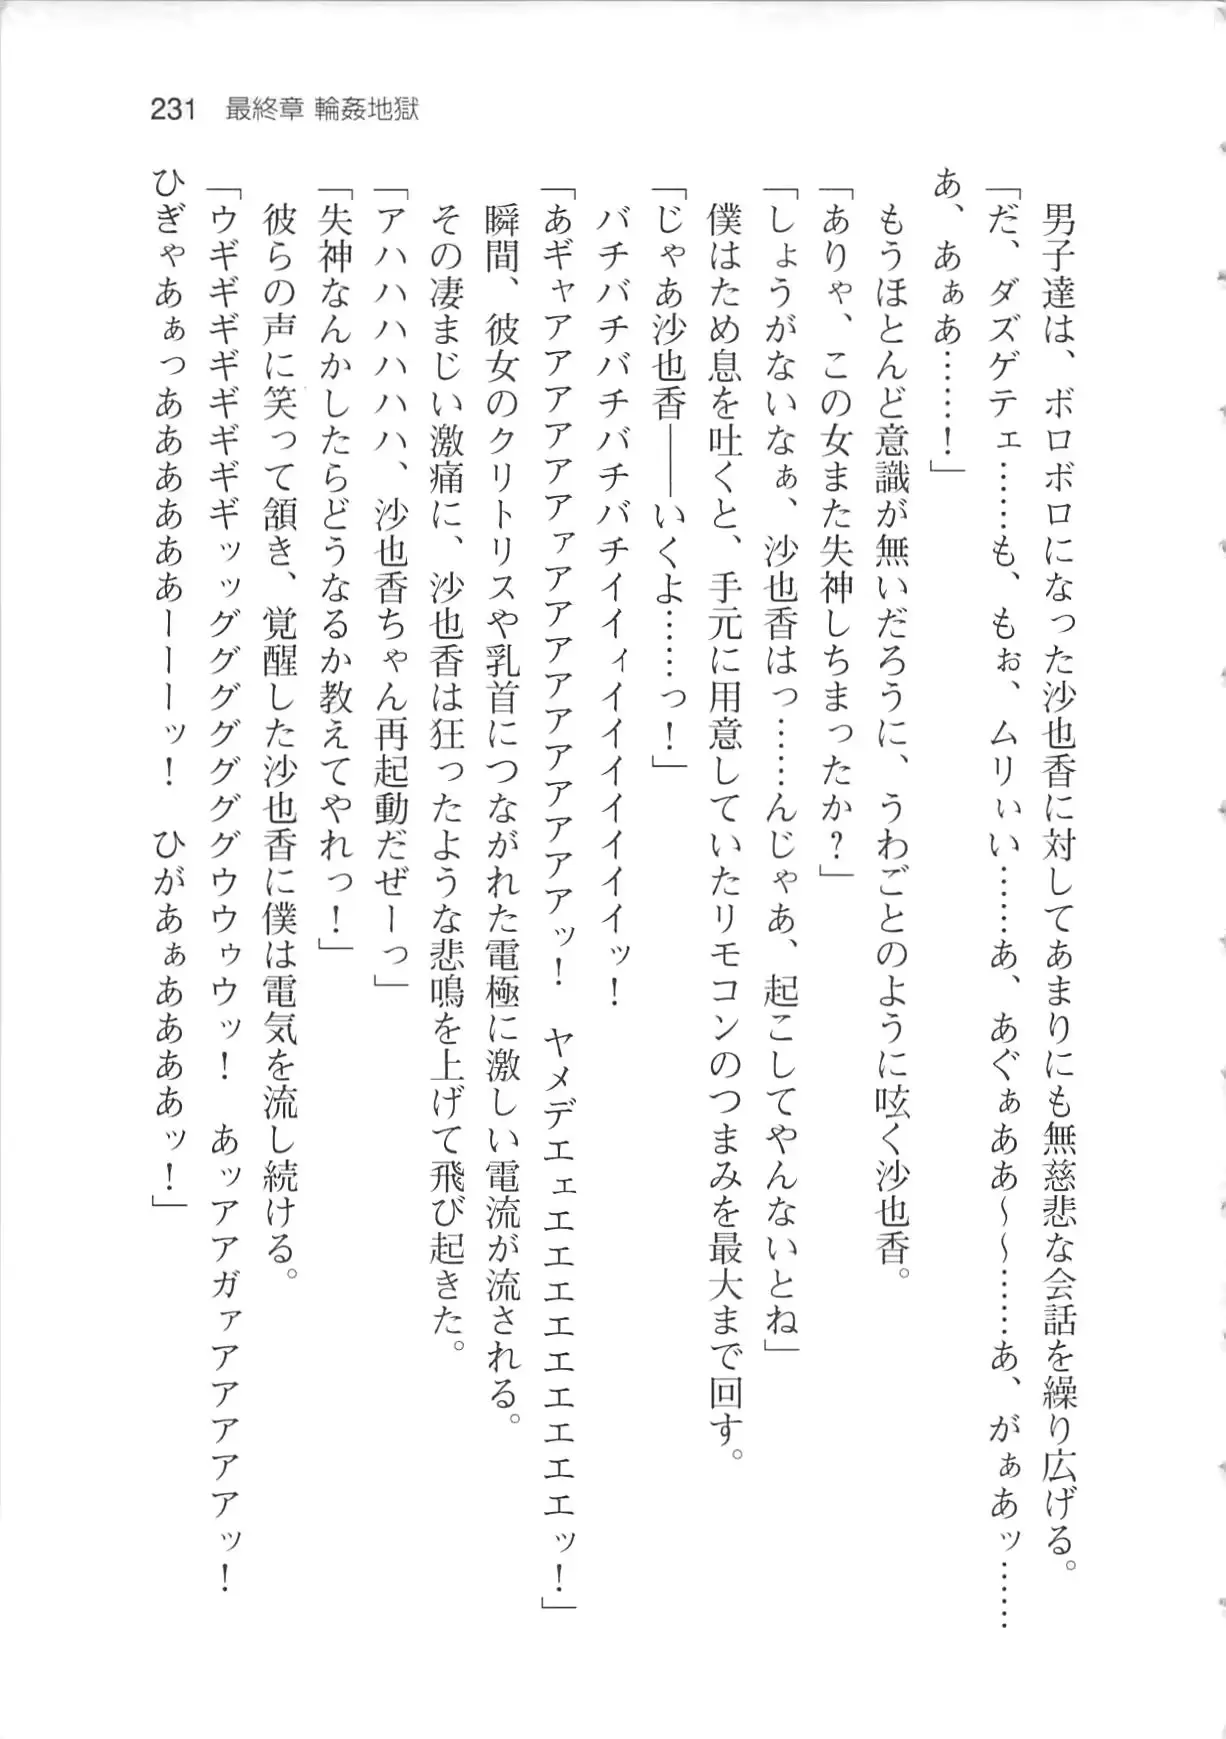 231 最終章 輪姦地獄
男子達は、ボロボロになった沙也香に対してあまりにも無慈悲な会話を繰り広げる。
「だ、ダズゲテェ……も、もぉ、ムリぃい……あ、あぐぁああ～～……あ、がぁあッ……
あ、あぁあ……！」
もうほとんど意識が無いだろうに、うわごとのように呟く沙也香。
「ありゃ、この女また失神しちまったか？」
「しょうがないなぁ、沙也香はっ……んじゃあ、起こしてやんないとね」
僕はため息を吐くと、手元に用意していたリモコンのつまみを最大まで回す。
「じゃあ沙也香――いくよ……っ！」
バチバチバチバチバチイイィイイイイイイッ！
「あギャアアアアアァアアアアアアアアアッ！　ヤメデエェエエエエエエエエエッ！」
瞬間、彼女のクリトリスや乳首につながれた電極に激しい電流が流される。
その凄まじい激痛に、沙也香は狂ったような悲鳴を上げて飛び起きた。
「アハハハハハハ、沙也香ちゃん再起動だぜーっ」
「失神なんかしたらどうなるか教えてやれっ！」
彼らの声に笑って頷き、覚醒した沙也香に僕は電気を流し続ける。
「ウギギギギギギギギッッグググググググウウゥウッ！　あッアアガァアアアアアッ！
ひぎゃあぁっああああああーーーッ！　ひがあぁああああッ！」